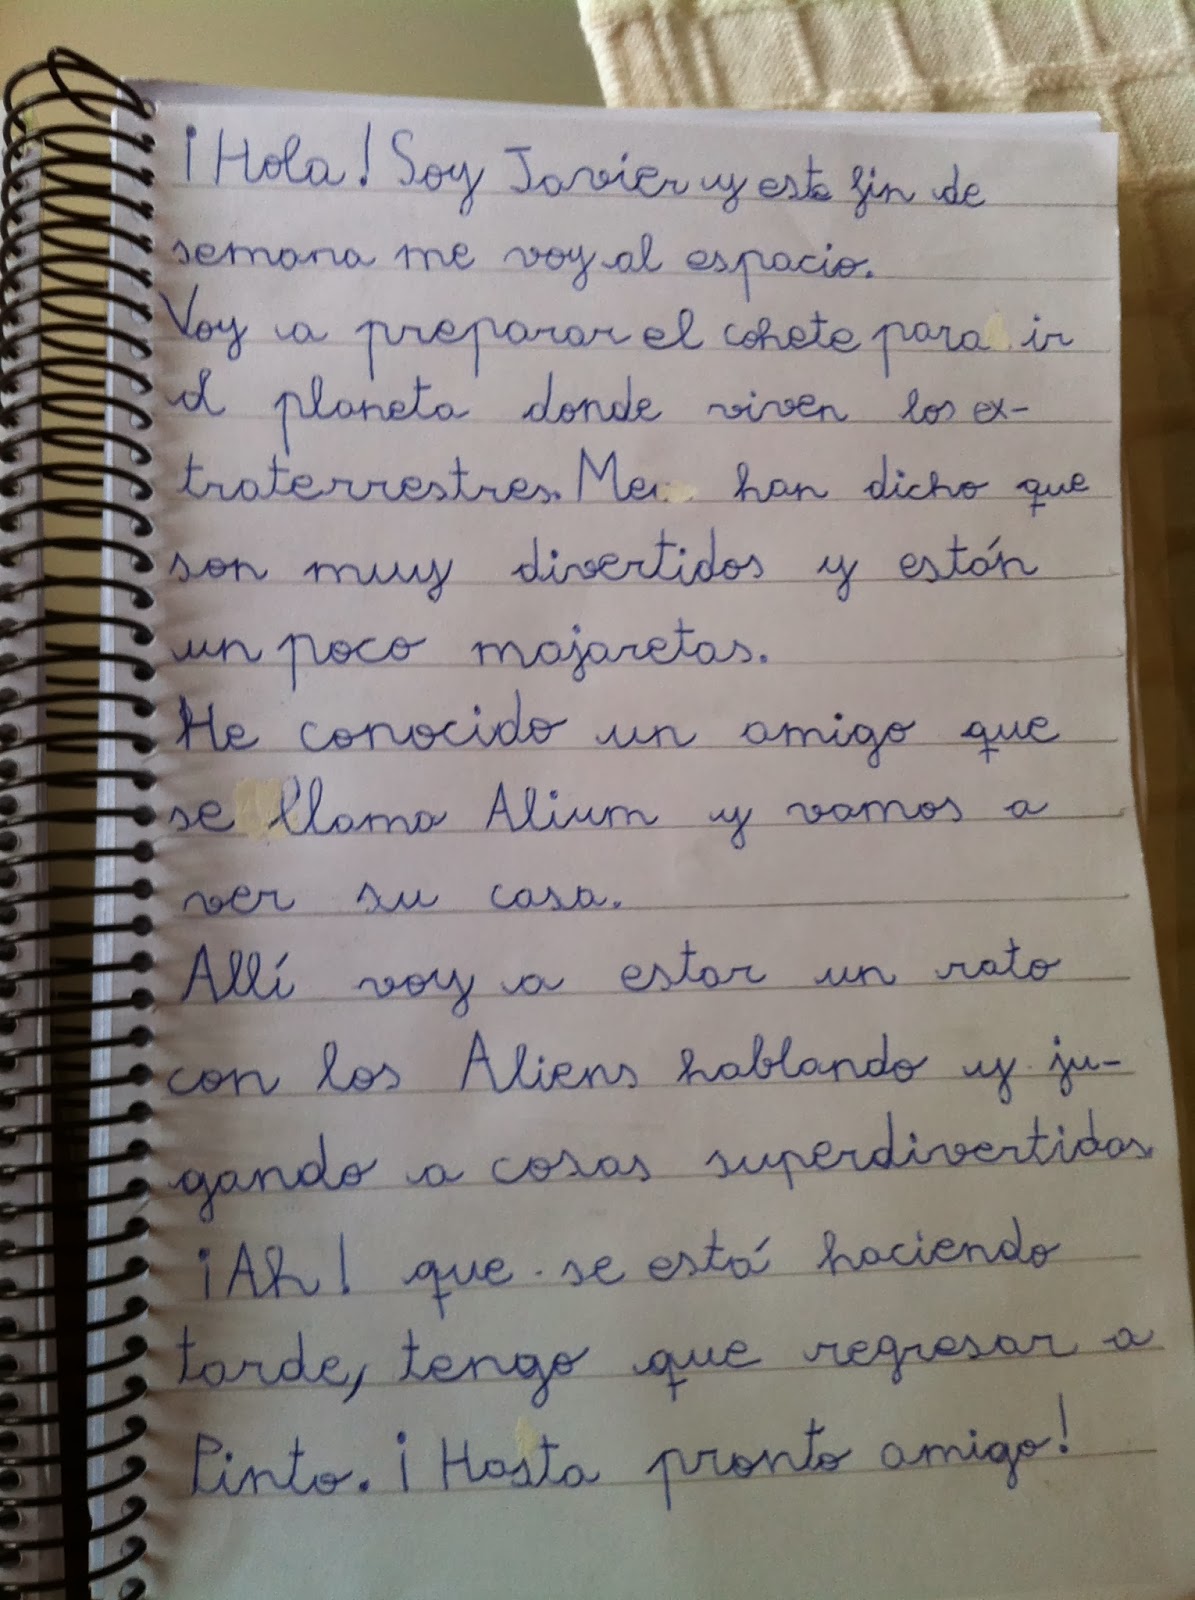 ¡Hola! Soy Javier y este fin de
semana me voy al espacio.
Voy a preparar el cohete para ir
al planeta donde viven los ex-
traterrestres. Me han dicho que
son muy divertidos y están
un poco majaretas.
He conocido un amigo que
se llama Alium y vamos a
ver su casa.
Allí voy a estar un rato
con los Aliens hablando y ju-
gando a cosas superdivertidas.
¡Ah! que se está haciendo
tarde, tengo que regresar a
Pinto. ¡Hasta pronto amigo!